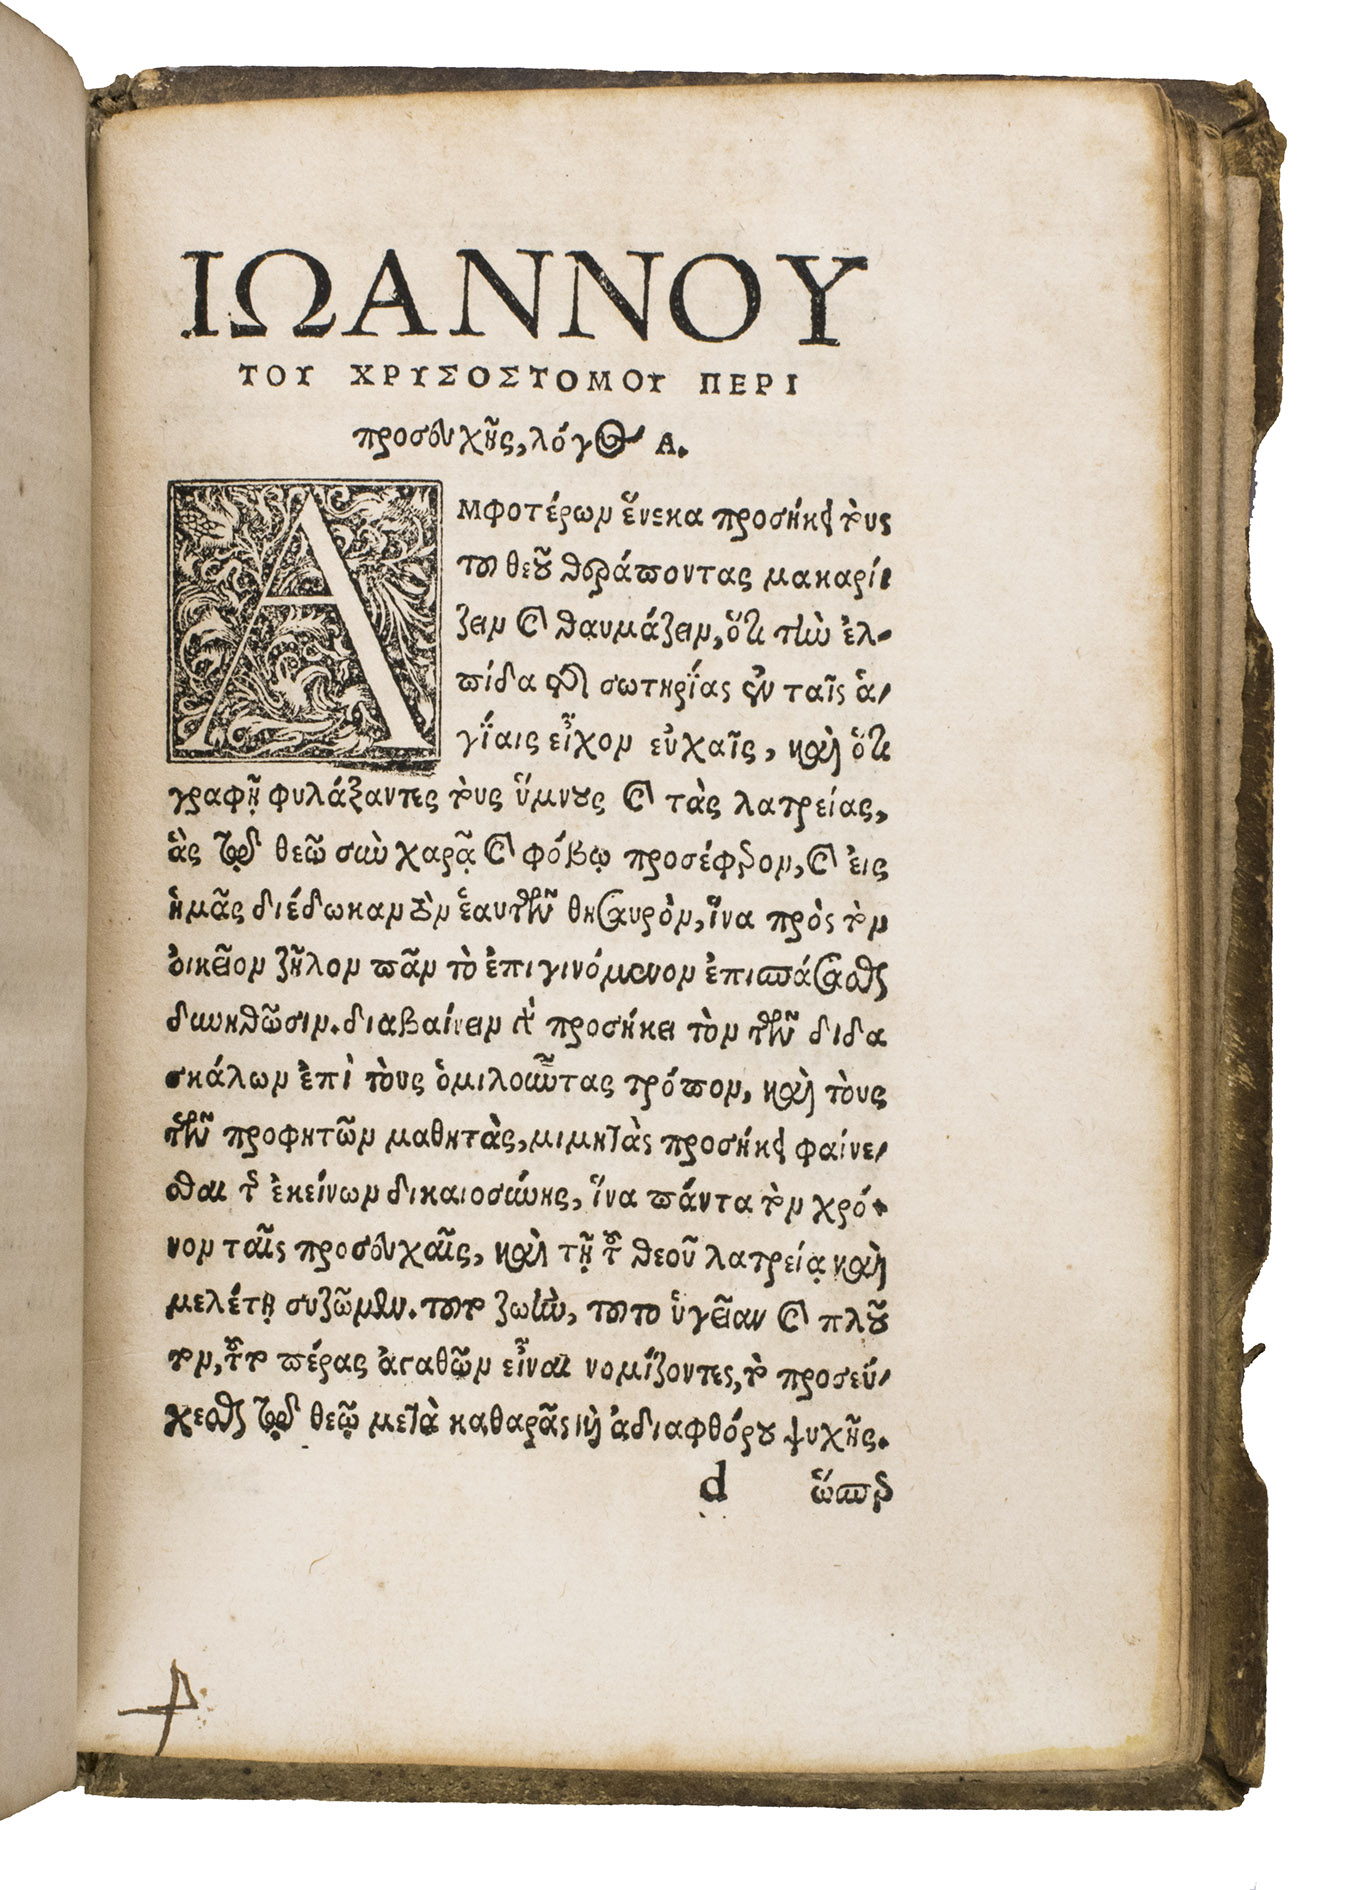 ΙΩΑΝΝΟΥ
ΤΟΥ ΧΡΥΣΟΣΤΟΜΟΥ ΠΕΡΙ
προσευχῆς, λόγος Α.
ΑΜφοτέρων ἕνεκα προσήκει τοὺς
τοῦ θεοῦ θεράποντας μακαρί-
ζειν καὶ θαυμάζειν, ὅτι τὴν ἐλ-
πίδα τῆς σωτηρίας ἐν ταῖς ἁ-
γίαις εἶχον εὐχαῖς, καὶ ὅτι
γραφῇ φυλάξαντες τοὺς ὕμνους καὶ τὰς λατρείας,
ἃς τῷ θεῷ σὺν χαρᾷ καὶ φόβῳ προσέφερον, καὶ εἰς
ἡμᾶς διέδωκαν τὸν ἑαυτῶν θησαυρὸν, ἵνα πρὸς τὸν
οἰκεῖον ζῆλον πᾶν τὸ ἐπιγινόμενον ἐπισπάσασθαι
δυνηθῶσιν. διαβαίνειν γὰρ προσήκει τὸν τῶν διδα
σκάλων ἐπὶ τοὺς ὁμιλοῦντας τρόπον, καὶ τοὺς
τῶν προφητῶν μαθητὰς, μιμητὰς προσήκει φαίνε-
σθαι τῆς ἐκείνων δικαιοσύνης, ἵνα πάντα τὸν χρό-
νον ταῖς προσευχαῖς, καὶ τῇ τοῦ θεοῦ λατρείᾳ καὶ
μελέτῃ συζῶμεν. τοῦτο ζωὴν, τοῦτο ὑγείαν καὶ πλοῦ
τον, τοῦτο πέρας ἀγαθῶν εἶναι νομίζοντες, τὸ προσεύ-
χεσθαι τῷ θεῷ μετὰ καθαρᾶς καὶ ἀδιαφθόρου ψυχῆς.
d ὥσπερ